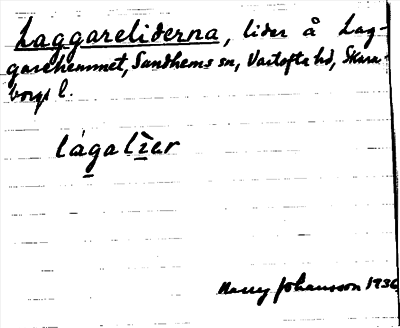 Laggareliderna, lider å Lag-
garehemmet, Sandhems sn, Vartofta hd, Skara-
borgs l.
lágalìer
Harry Johansson 1936